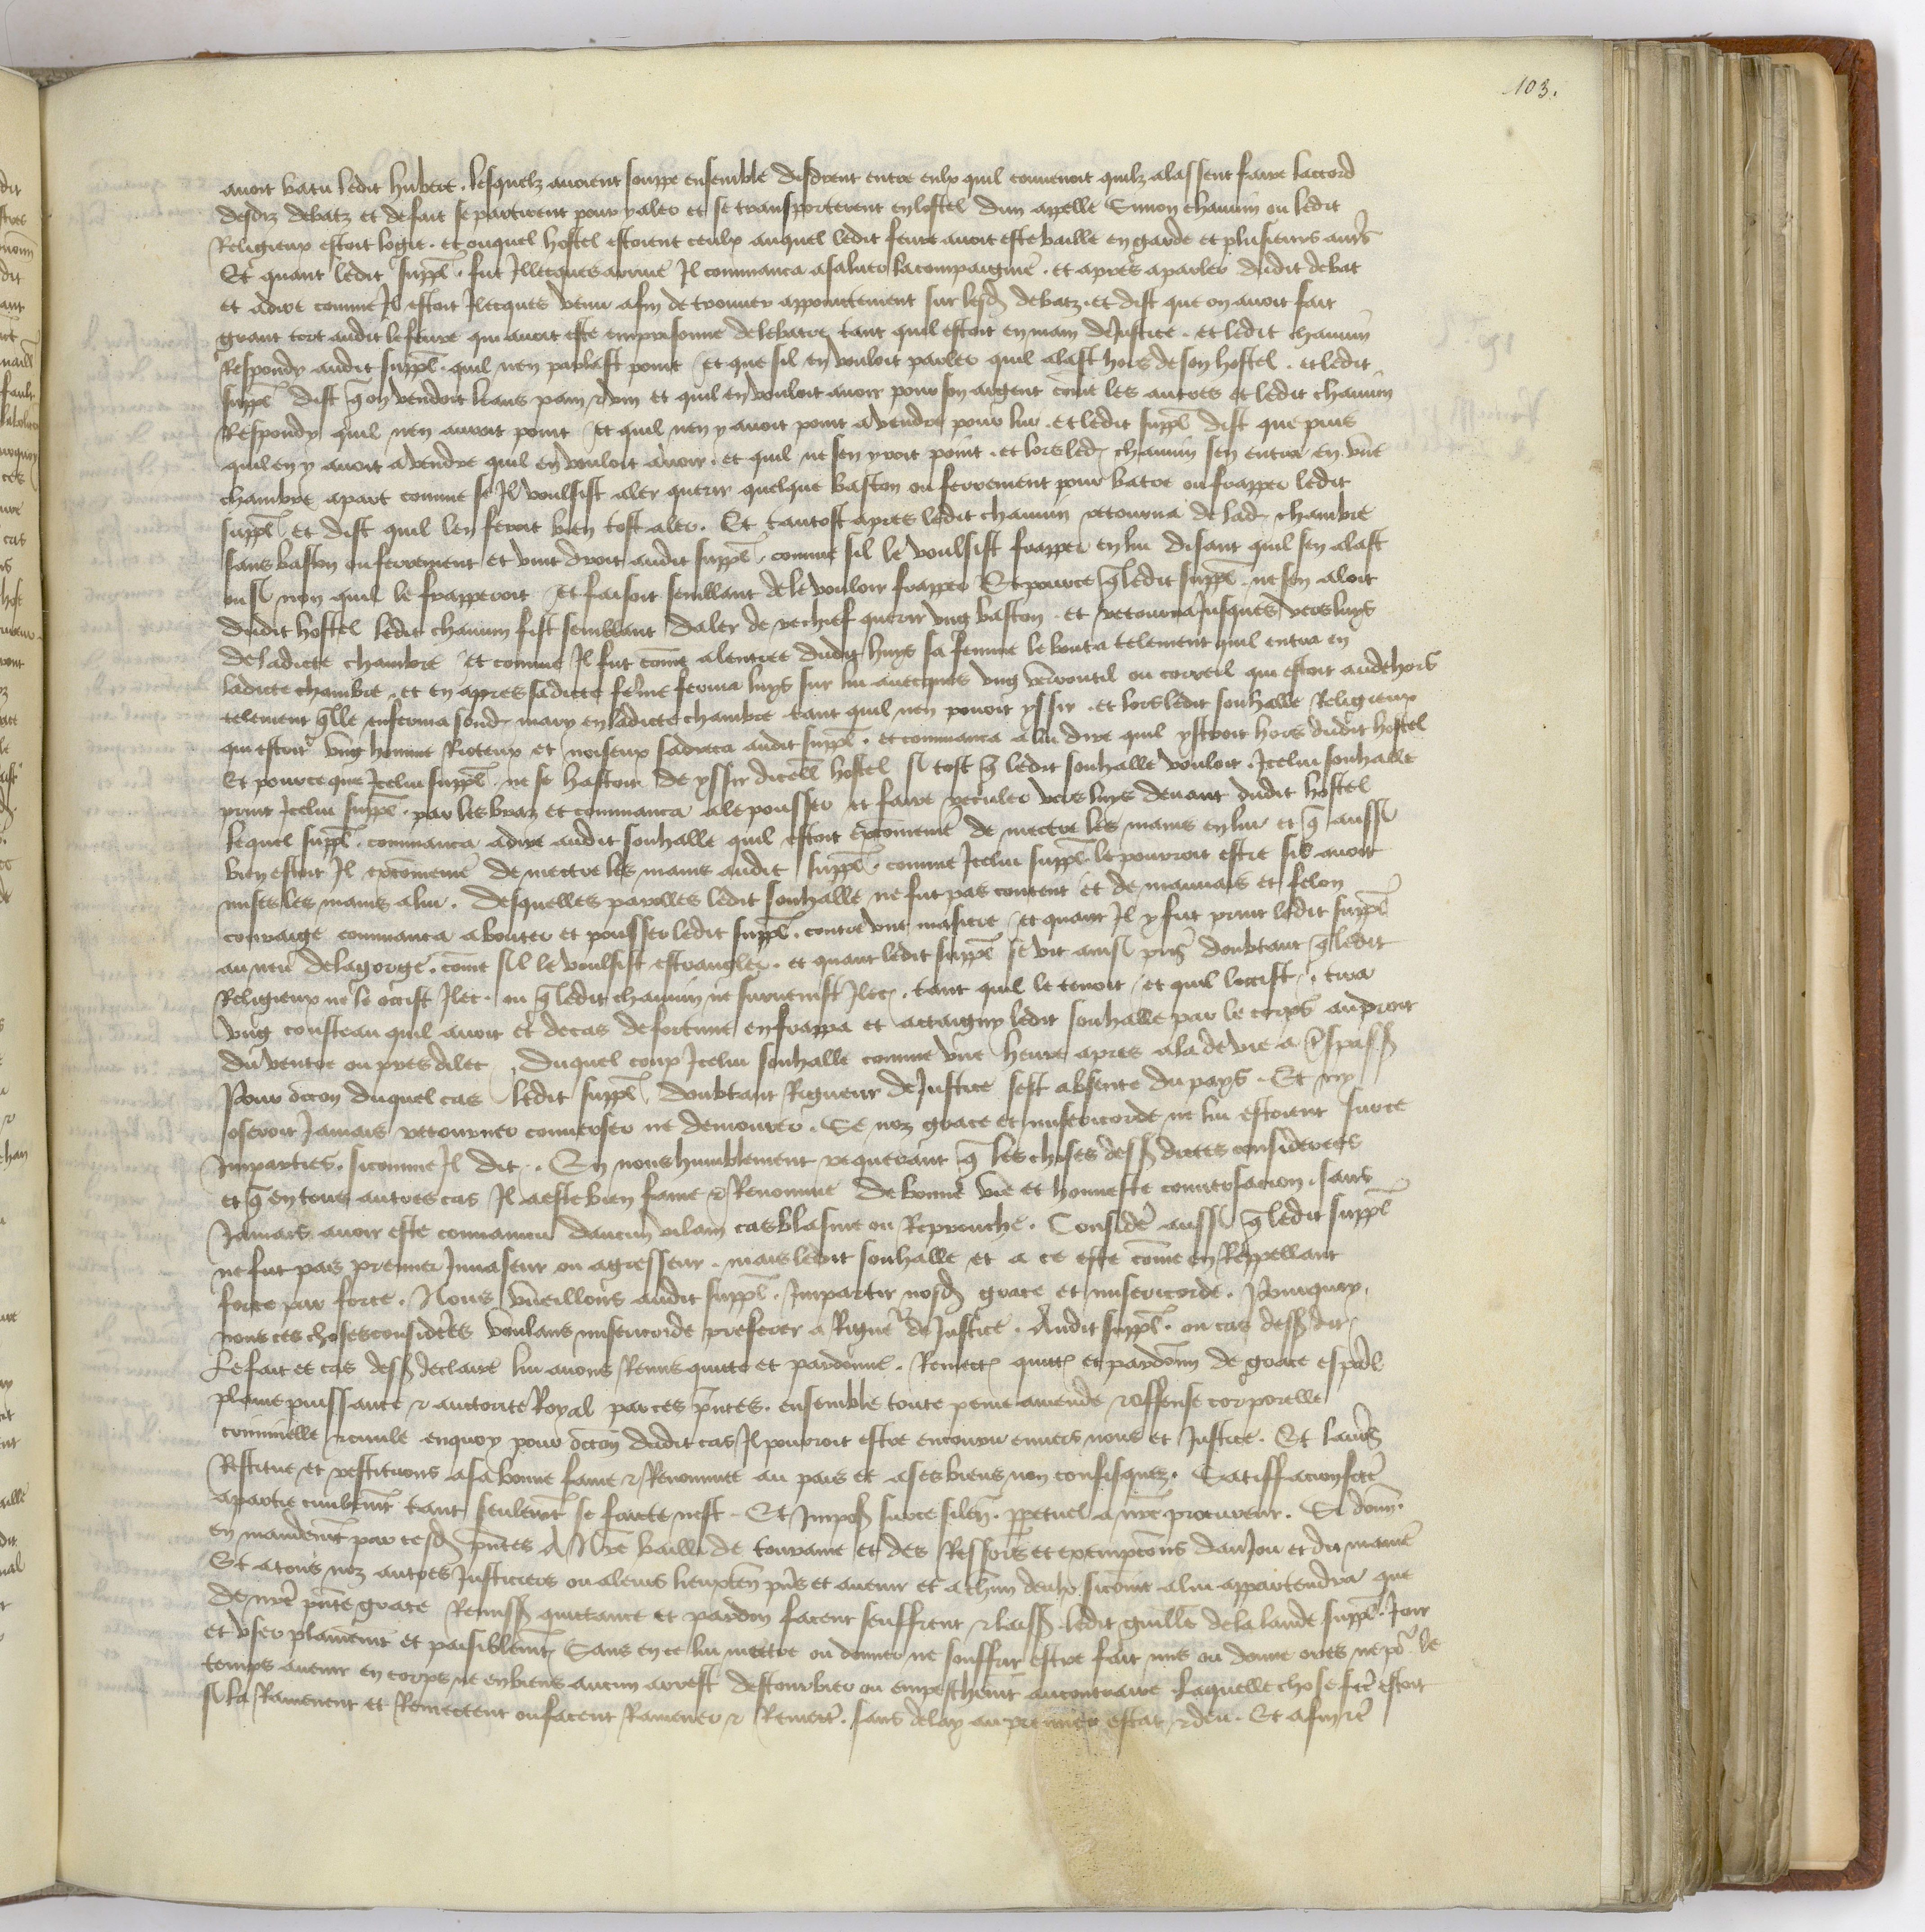 103.
avoit batu ledit hubert. lesquelz avoient souppe ensemble disdrent entre eulx quil convenoit quilz alassent faire laccord
desdiz debatz et de fait se partirent pour y aler et se transporterent en lostel dun appelle Simon chauvin ou ledit
Religieux estoit logie. et ouquel hostel estoient ceulx auquel ledit fevre avoit este baille en garde et plusieurs autrs
Et quant ledit suppl. fut Illecques arrive Il commanca a saluer la compaignie. et apres a parler dudit debat
et a dire comme Il estoit Ilecques venu afin de trouver appoinctement sur lesd debatz. et dist que on avoit fait
grant tort audit lefevre qui avoit este emprisonne de le batre tant quil estoit en main de Justice. et ledit chauvin
Respondy audit suppl. quil nen parlast point et que sil en vouloit parler quil alast hors de son hostel. et ledit
suppl dist q on vendoit leans pain & vin et quil en vouloit avoir pour son argent cõme les autres et ledit chauvin
Respondy quil nen avoit point et quil nen y avoit point a vendre pour lui. et ledit suppl dist que puis
quil en y avoit a vendre quil en vouloit avoir. et quil ne sen yroit point. et lors led. chauvin sen entra en une
chambre apart comme se Il voulsist aler querir quelque baston ou ferrement pour batre ou frapper ledit
suppl et dist quil len feroit bien tost aler. Et tantost apres ledit chauvin retourna de lad. chambre
sans baston ou ferrement et vint droit audit suppl. comme sil le voulsist frapper en lui disant quil sen alast
ou si non quil le frapperoit et faisoit semblant de le vouloir frapper Et pource q ledit suppl. ne sen aloit
dudit hostel ledit chauvin fist semblant daler de rechief querir ung baston. et retourna Jusques vers luys
de ladicte chambre et comme Il fut cõme a lentree dudit huys sa femme le bouta telement quil entra en
ladicte chambre. et en apres sadicte fẽme ferma luys sur lui avecques ung verroutil ou correil qui estoit audehors
telement qlle enferma sond. mary en ladicte chambre tant quil nen povoit yssir. et lors ledit sonhalle Religieux
qui estoit ung homme Rioteux et noiseux sadreca audit suppl. et commanca a lui dire quil ystroit hors dudit hostel
Et pource que Icelui suppl. ne se hastoit de yssir dicell hostel si tost q ledit sonhalle vouloit. Icelui sonhalle
print Icelui suppl. par les braz et commanca a le pousser et faire reculer vers luys devant dudit hostel
lequel suppl. commanca a dire audit sonhalle quil estoit excõmenie de mectre les mains en lui et q aussi
bien estoit Il excõmenie de mectre les mains audit suppl. comme Icelui suppl. le pourroit estre sil avoit
mises les mains a lui. desquelles paroles ledit sonhalle ne fut pas content et de mauvais et felon
couraige commanca a bouter et pousser ledit suppl. contre une masiere et quant Il y fut print ledit suppl
au neu de la gorge. cõme sil le voulsist estrangler. et quant ledit suppl se vit ainsi pris doubtant q ledit
Religieux ne le occist Ilec. ou q ledit chauvin ne survenist Ilec. tant quil le tenoit et quil loccist. tira
ung cousteau quil avoit et de cas de fortune en frappa et actaigny ledit sonhalle par le corps au droit
du ventre ou pres dilec. duquel coup Icelui sonhalle comme une heure apres ala de vie a trspass
Pour occon duquel cas ledit suppl. doubtant Rigueur de Justice sest absente du pays. Et ny
oseroit Jamais retourner converser ne demourer. Se noz grace et misericorde ne lui estoient surce
Imparties. sicomme Il dit. En nous humblement requerant q les choses dess dictes considerees
et q en tous autres cas Il a este bien fame & Renomme de bonne vie et honneste conversacion. sans
Jamais avoir este convaincu daucun vilain cas blasme ou Reprouche. Consideré aussi q ledit suppl
ne fut pas premier Invaseur ou agresseur. mais ledit sonhalle et a ce este cõme en Reppellant
force par force. Nous vueillons audit suppl. Impartir nosd grace et misericorde. Pourquoy.
nous ces choses considerées voulans misericorde preferer a Rigueur de Justice. Audit suppl. ou cas dess dit
Le fait et cas dess declaire lui avons Remis quicte et pardonne. Remect quitt et pardonn de grace espal
plaine puissance & auctorite Royal par ces pñtes. ensemble toute peine amende & offense corporelle
criminelle & civile enquoy pour occon dudit cas Il pourroit estre encouru envers nous et Justice. Et lavons
Restitue et restituons a sa bonne fame & Renommee au pais et a ses biens non confisquez. Satisfacion fcte
a partie civilemt tant seulemt se faicte nest. Et Impos surce silen. ppetuel a nre procureur. Si donn.
en mandemt par cesd pñtes A Nre bailli de touraine et des Ressors et exempcons danjou et du maine
Et a tous noz autres Justiciers ou a leurs lieuxten pñs et avenir et a chun deulx sicõme a lui appartendra que
de nre pñte grace Remiss quictance et pardon facent seuffrent & laiss ledit guille de la lande suppl. Joir
et user plainemt et paisiblemt Sans en ce lui mectre ou donner ne souffrir estre fait mis ou donne ores ne po le
temps avenir en corps ne en biens aucun arrest destourbier ou empeschemt aucontraire. Laquelle chose fcte estoit
si la Ramenent et Remectent ou facent Ramener & Remect. sans delay au premier estat & deu. Et afin &c